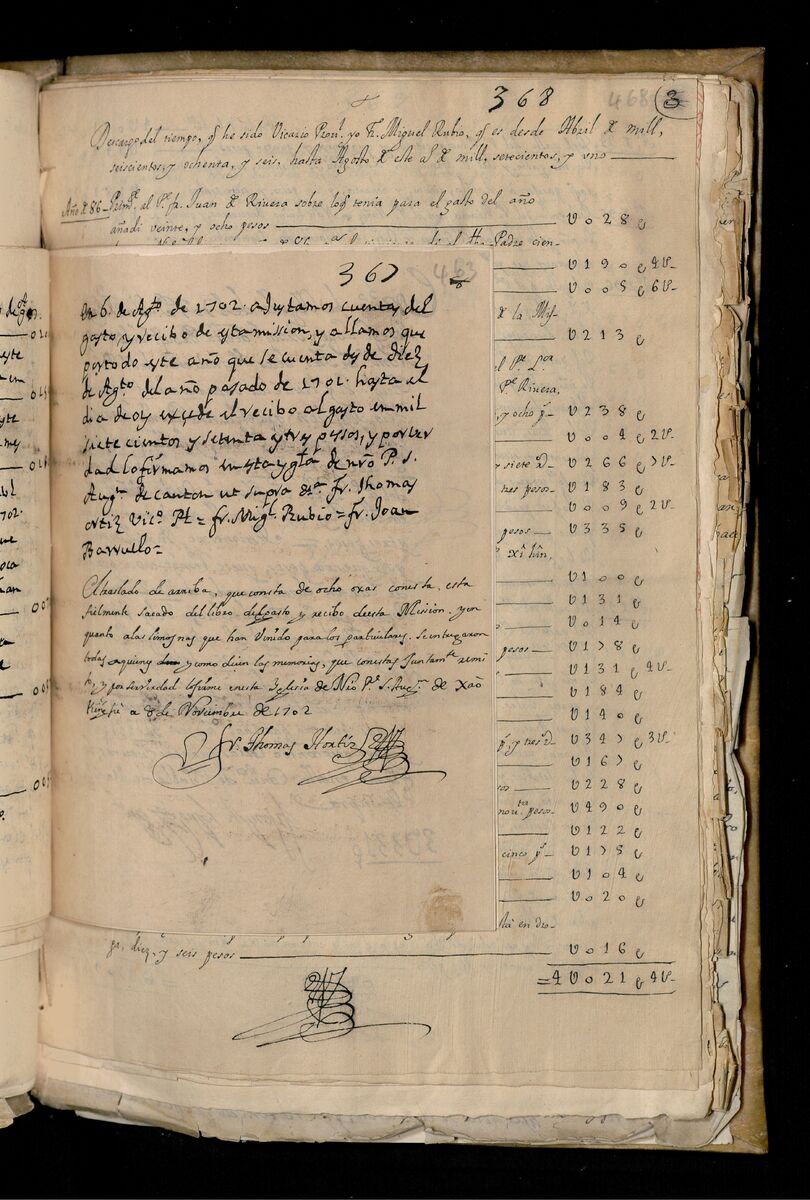 368
468
3
Descargo del tiempo, q̃ he sido Vicario Provl. yo Fr. Miguel Rubio, q̃ es desde Abril de mill,
seiscientos, y ochenta, y seis, hasta Agosto de este al de mill, setecientos, y uno
Año de 86 al Pe. fr. Juan de Rivera sobre lo q̃ tenia para el gasto del año
añadi veinte, y ocho pesos U028
Padre cien-
U190 4U
U005 6U
de la Mis-
U213
Pe. Rivera.
y ocho ps U238
U004 2U
y siete U266 7U
tres pesos U183
U009 2U
pesos U335
U100
U131
U014
pesos U178
U131 4U
U184
U140
y tres U347 3U
U167
U228
pesos U490
U122
cinco ps U175
U104
U020
en dro-
ga, diez, y seis pesos U016
=4U021 4U
367
463
en 6 de Agto. de 1702. ajustamos cuentas del
gasto, y recibo de esta mission, y allamos que
por todo este año que se cuenta desde diez
de Agto. del año pasado de 1701. hasta el
dia de oy excede el recibo al gasto en mil
siete cientos y setenta y tres pessos, y por ver
dad lo firmamos en esta ygla. de nro P. S.
Augn. de canton ut supra fr. Thomas
ortiz Vico. Pl = fr. Migl. Rubio = fr. Joan
Barruelo =
El traslado de arriba, que consta de ocho oxas con esta, esta
fielmente sacado del libro del gasto y recibo de esta Mission, y en
quanto a las limosnas que han venido para los particulares. Se entregaron
todas a quienes y como dicen las memorias, que con estas juntamte. remi
to, y por ser verdad lo firme en esta Iglesia de Nro Pe. S. Augn. de Xao
Kingfu a 8 de Noviembre de 1702
fr. Thomas Hortiz